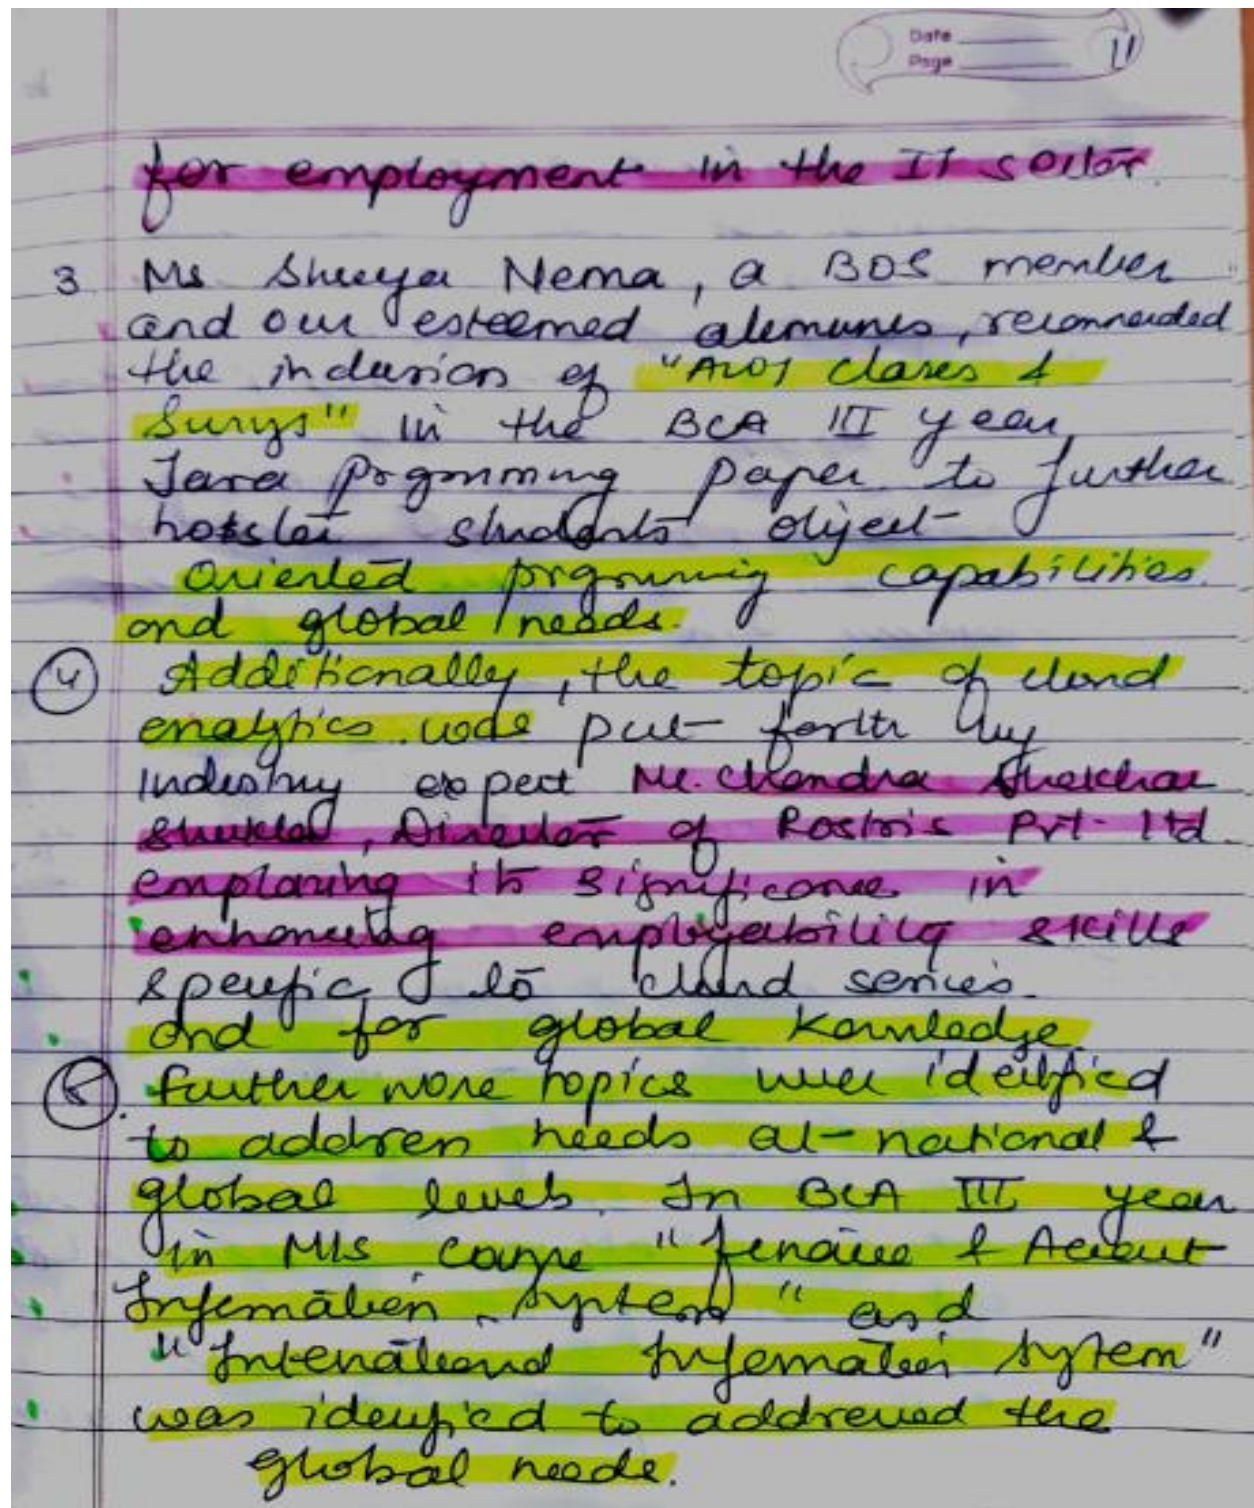 Date
Page 11
for employment in the IT sector.
3 Ms Shreya Nema, a BOS member
and our esteemed alumunes, recommended
the inclusion of " clases &
" in the BCA III year
Java prgmming paper to further
students object-
oriented prgmming capabilities.
and global needs.
4 Additionally, the topic of cloud
analytics was put forth by
industry expect Mr. Chandra Shekhar
Shukla, Director of Pvt. ltd.
its significance in
enhancing employability skills
specific to cloud services.
and for global Kownledge
5. Further more topics were identified
to address needs at national &
global levels. In BCA III year
in MIS course "Finance & Account
Information System" and
"International Information System"
was idenfied to addressed the
global needs.